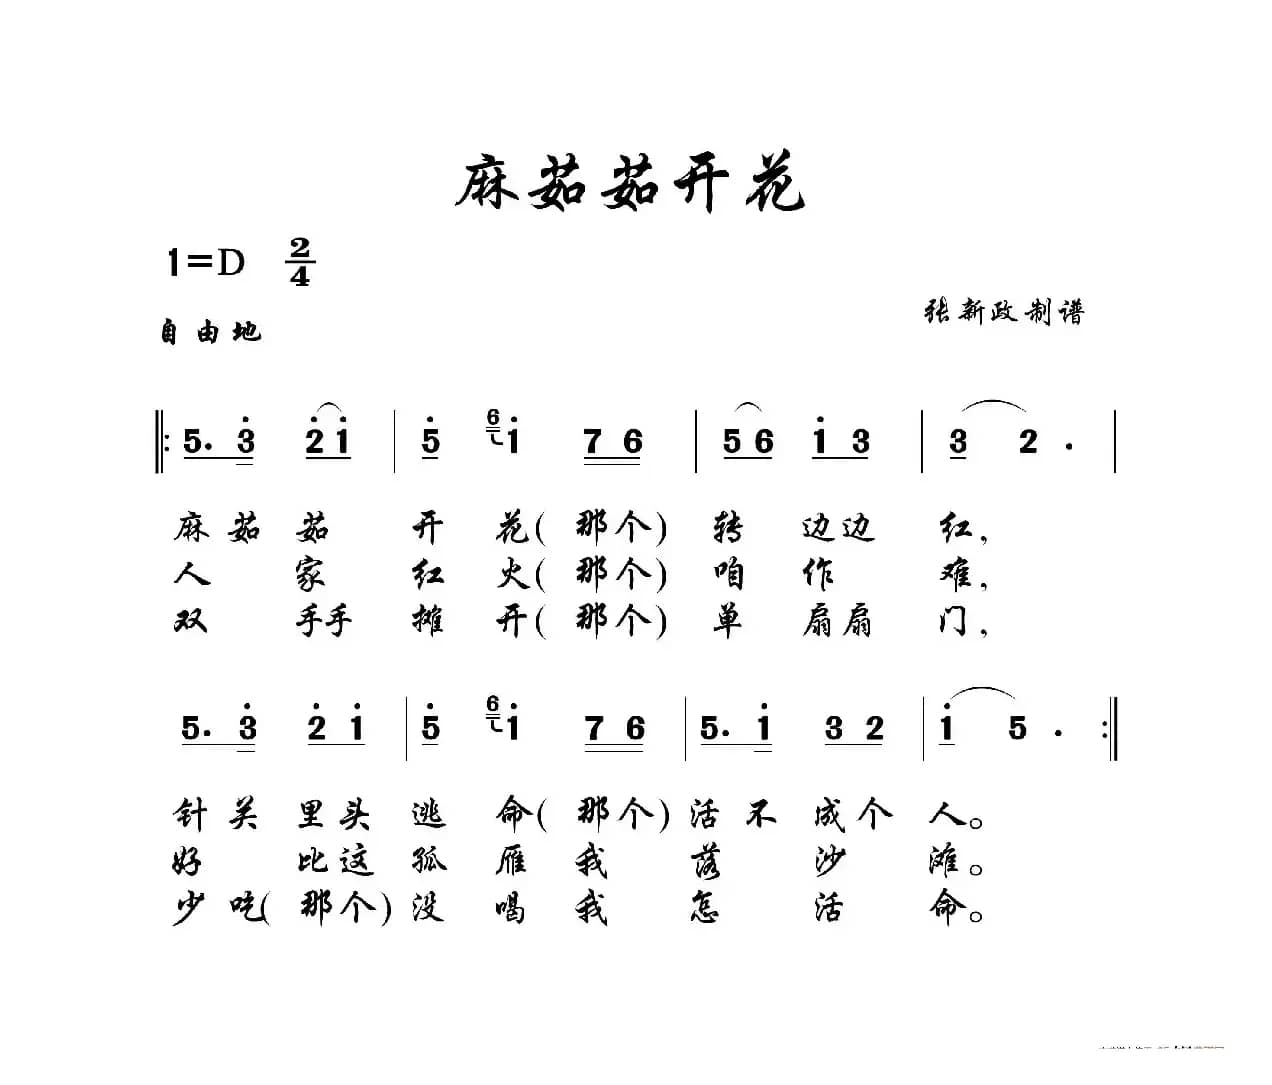 麻茹茹开花
1=D 2/4
张新政制谱
自由地
5. 3 2 1 5 6 1 7 6 5 6 1 3 3 2 .
麻茹 茹 开 花( 那个) 转 边边 红,
人 家 红 火( 那个) 咱 作 难,
双 手手 摊 开( 那个) 单 扇扇 门,
5. 3 2 1 5 6 1 7 6 5. 1 3 2 1 5 .
针关 里头 逃 命( 那个) 活不 成个 人。
好 比这 孤 雁 我 落 沙 滩。
少吃( 那个) 没 喝 我 怎 活 命。